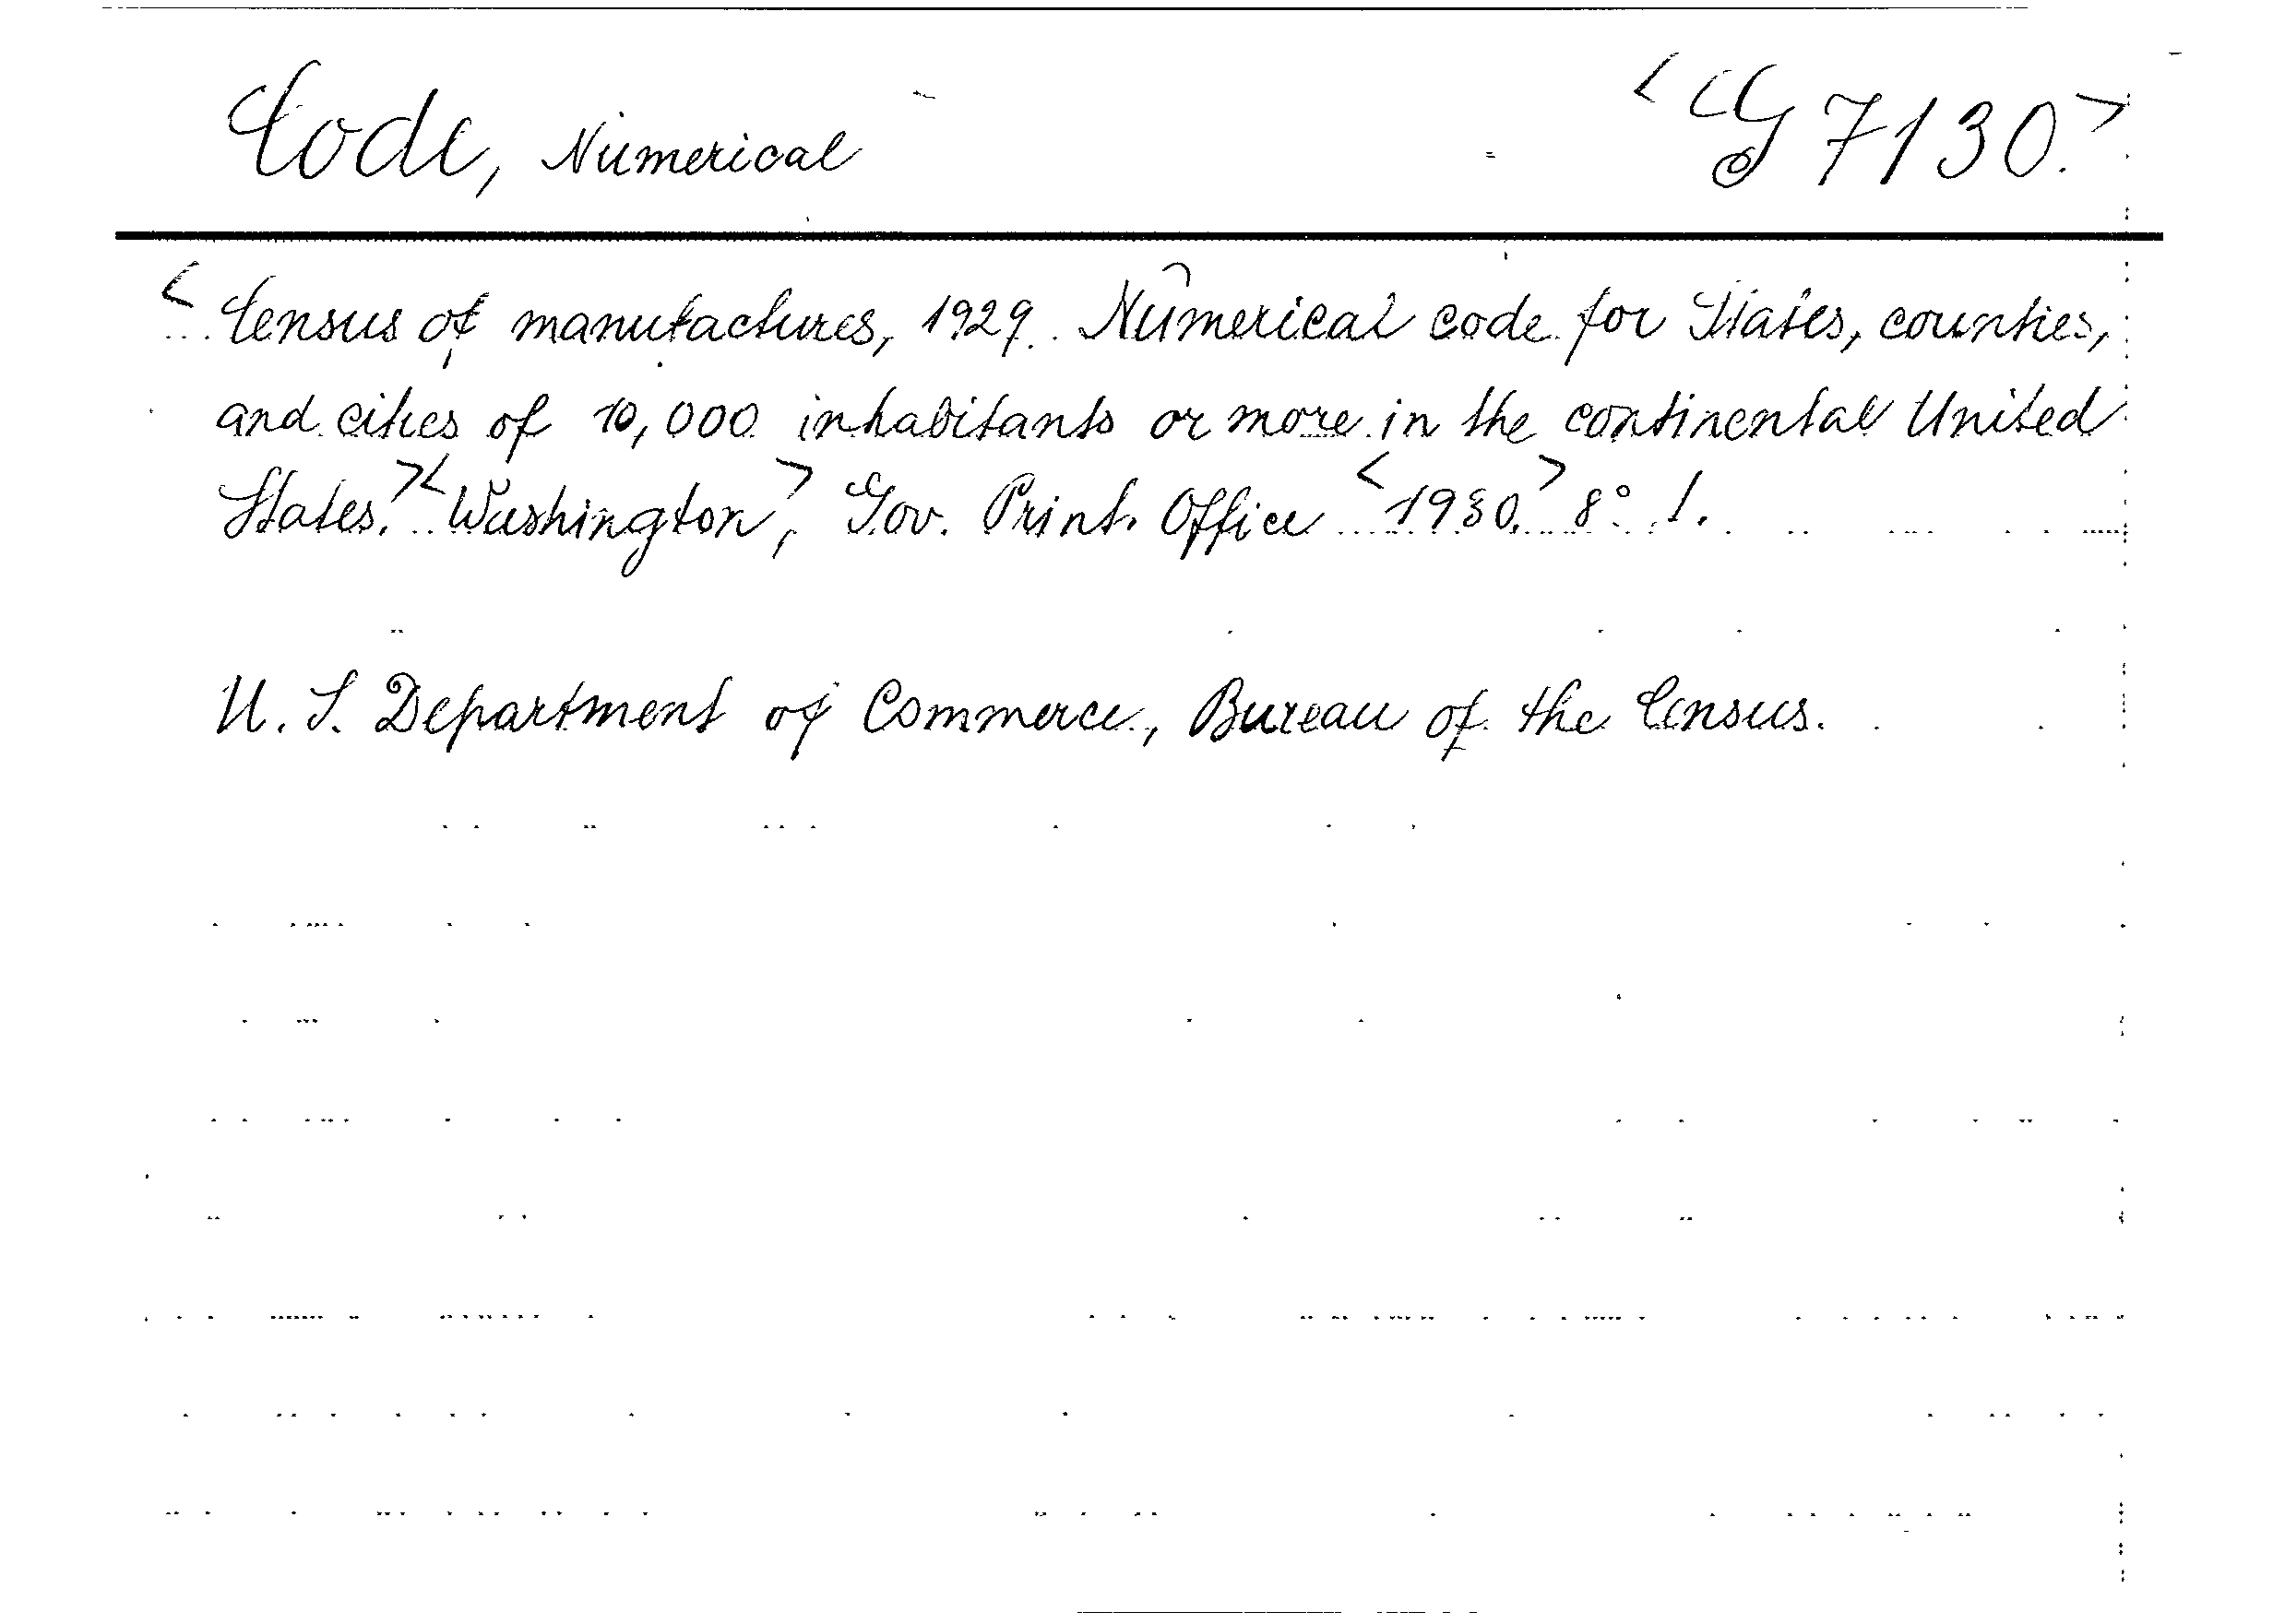 Code, Numerical <G 7130.>
<Census of manufactures, 1929. Numerical code for States, counties,
and cities of 10,000 inhabitants or more in the continental United
States.><Washington>, Gov. Print. Office <1930.> 8° !.
U. S. Department of Commerce, Bureau of the Census.